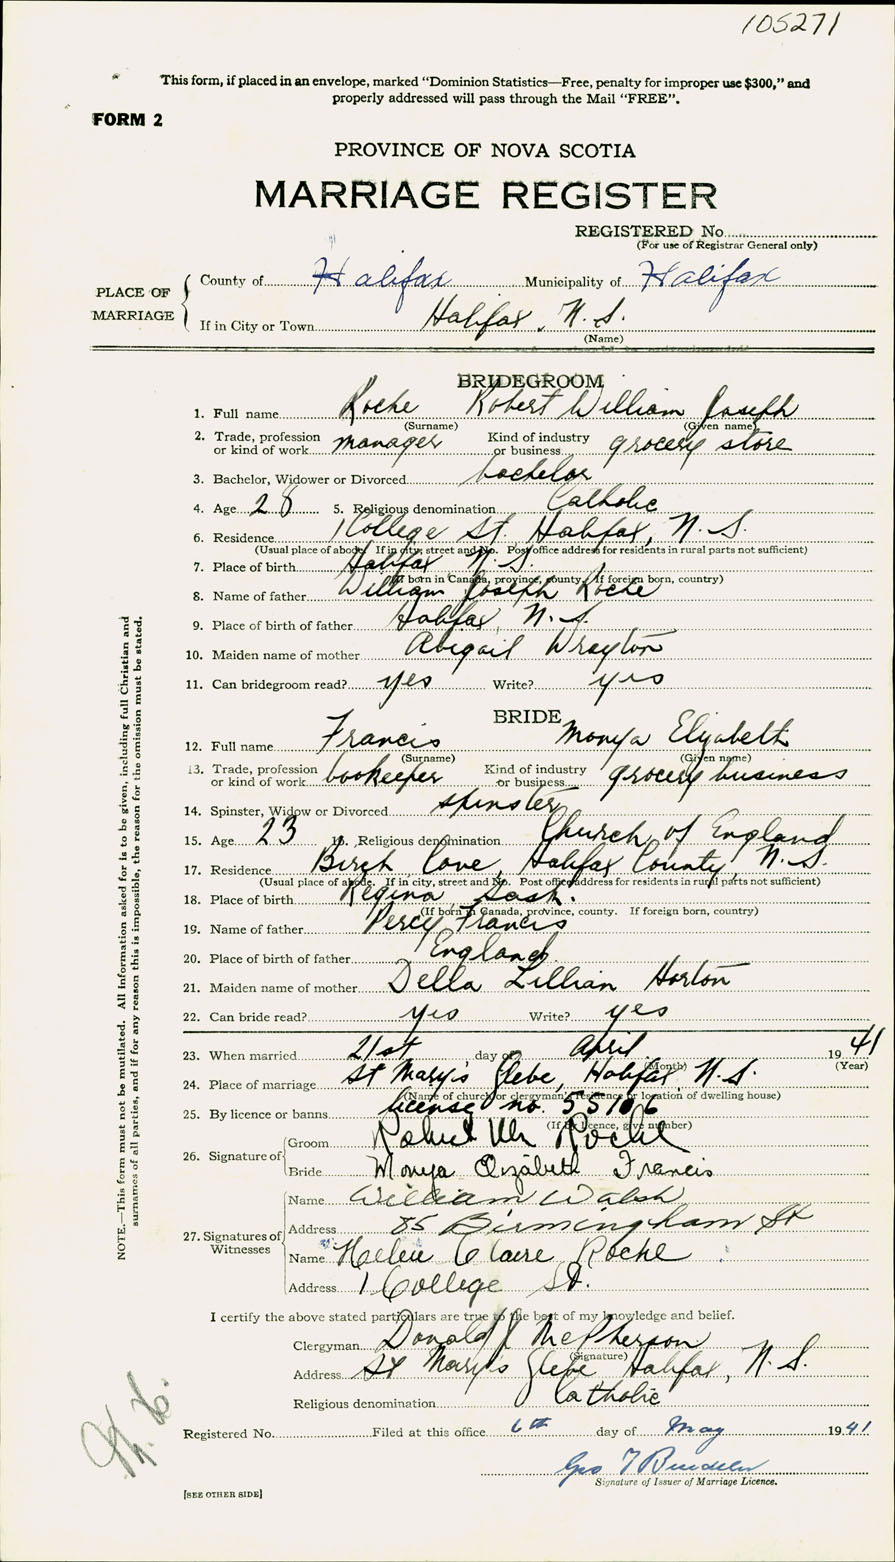 105271
This form, if placed in an envelope, marked "Dominion Statistics—Free, penalty for improper use $300," and
properly addressed will pass through the Mail "FREE".
FORM 2
PROVINCE OF NOVA SCOTIA
MARRIAGE REGISTER
REGISTERED No.
(For use of Registrar General only)
PLACE OF MARRIAGE
County of Halifax Municipality of Halifax
If in City or Town Halifax, N.S.
(Name)
BRIDEGROOM
1. Full name Roche Robert William Joseph
(Surname) (Given name)
2. Trade, profession or kind of work manager Kind of industry or business grocery store
3. Bachelor, Widower or Divorced bachelor
4. Age 28 5. Religious denomination Catholic
6. Residence 1 College St. Halifax, N.S.
(Usual place of abode. If in city, street and No. Post office address for residents in rural parts not sufficient)
7. Place of birth Halifax N.S.
(If born in Canada, province, county. If foreign born, country)
8. Name of father William Joseph Roche
9. Place of birth of father Halifax, N.S.
10. Maiden name of mother Abigail Wrayton
11. Can bridegroom read? yes Write? yes
BRIDE
12. Full name Francis Monya Elizabeth
(Surname) (Given name)
13. Trade, profession or kind of work bookeeper Kind of industry or business grocery business
14. Spinster, Widow or Divorced spinster
15. Age 23 16. Religious denomination Church of England
17. Residence Birch Cove, Halifax County, N.S.
(Usual place of abode. If in city, street and No. Post office address for residents in rural parts not sufficient)
18. Place of birth Regina Sask.
(If born in Canada, province, county. If foreign born, country)
19. Name of father Percy Francis
20. Place of birth of father England
21. Maiden name of mother Della Lillian Horton
22. Can bride read? yes Write? yes
23. When married 21st day of April 1941
(Month) (Year)
24. Place of marriage St Mary's Glebe, Halifax, N.S.
(Name of church or clergyman's residence or location of dwelling house)
25. By licence or banns license no. 55106
(If by licence, give number)
26. Signature of
Groom Robert Wm Roche
Bride Monya Elizabeth Francis
27. Signatures of Witnesses
Name William Walsh
Address 85 Birmingham St
Name Helen Claire Roche
Address 1 College St.
I certify the above stated particulars are true to the best of my knowledge and belief.
Clergyman Donald J McPherson
(Signature)
Address St Mary's Glebe Halifax, N.S.
Religious denomination Catholic
Registered No. Filed at this office 6th day of May 1941
Geo T
Signature of Issuer of Marriage Licence.
[SEE OTHER SIDE]
NOTE.—This form must not be mutilated. All information asked for is to be given, including full Christian and
surnames of all parties, and if for any reason this is impossible, the reason for the omission must be stated.